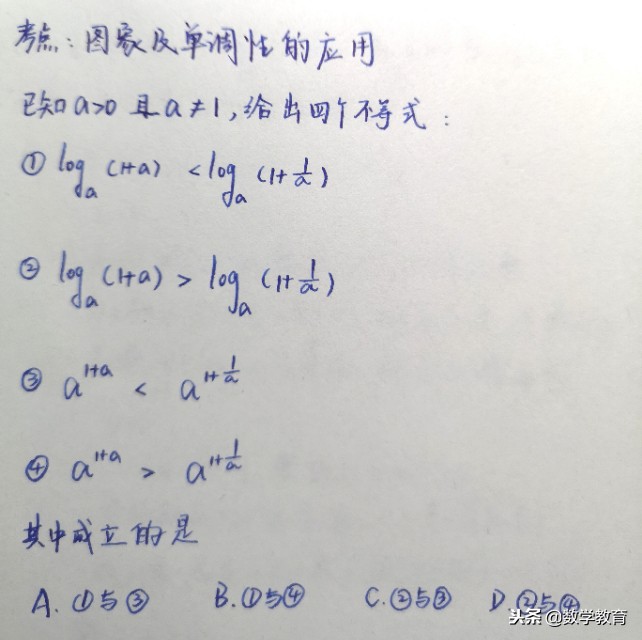 考点:图象及单调性的应用
已知a>0且a≠1,给出四个不等式:
① logₐ(1+a) < logₐ(1+1/a)
② logₐ(1+a) > logₐ(1+1/a)
③ a^(1+a) < a^(1+1/a)
④ a^(1+a) > a^(1+1/a)
其中成立的是
A. ①与③ B. ①与④ C. ②与③ D ②与④
头条 @数学教育